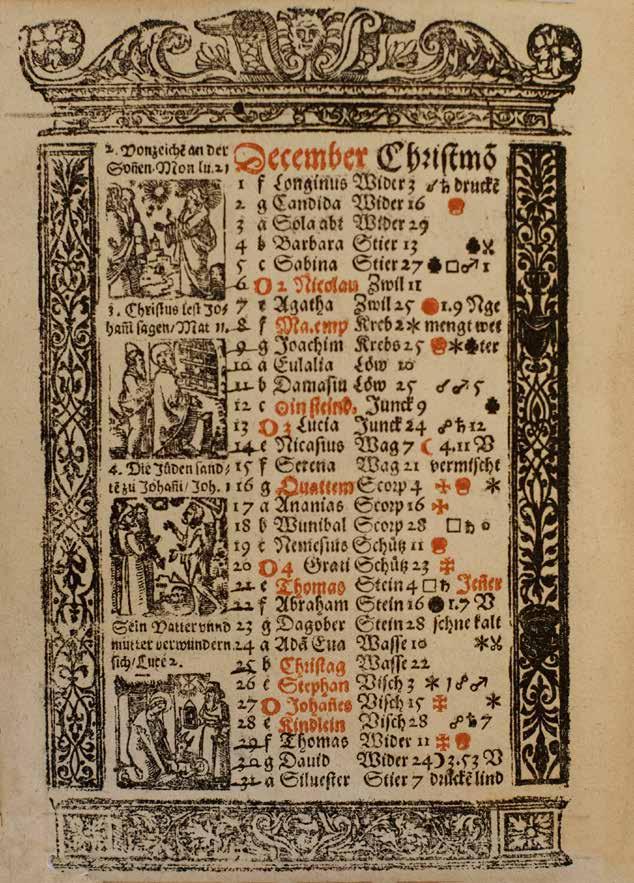 2. Vonzeichē an der
Soñen. Mon lu. 21
3. Christus lest Jo-
hañi sagen/ Mat 11.
4. Die Jüden sand-
tē zu Johañi/ Joh. 1
Sein Vatter vnnd
mutter verwundern
sich/ Luce 2.
December Christmō
1 f Longinus Wider 3 ☍ ♄ druckē
2 g Candida Wider 16
3 a Sola abt Wider 29
4 b Barbara Stier 13
5 c Sabina Stier 27 □ ♂ 1
6 O 2 Nicolau Zwil 11
7 e Agatha Zwil 25 1.9 Nge
8 f Ma.emp Kreb 2 * mengt wet
9 g Joachim Krebs 25 * ter
10 a Eulalia Löw 10
11 b Damasiu Löw 25 ☍ ♂ 5
12 c Junck 9
13 O 3 Lucia Junck 24 ☍ ♄ 12
14 e Nicasius Wag 7 ☾ 4.11 V
15 f Serena Wag 21 vermischt
16 g Quattem Scorp 4 *
17 a Ananias Scorp 16
18 b Wunibal Scorp 28 □ ♄
19 c Nemesius Schütz 11
20 O 4 Grati Schütz 23
21 e Thomas Stein 4 □ ♄ Jeñer
22 f Abraham Stein 16 1.7 V
23 g Dagober Stein 28 schne kalt
24 a Adā Eua Wasse 10 *
25 b Christag Wasse 22
26 c Stephan Visch 3 * 1 ☍ ♂
27 O Johañes Visch 15 *
28 e Kindlein Visch 28 ☍ ♄ 7
29 f Thomas Wider 11
30 g Dauid Wider 24 ☽ 3.53 V
31 a Siluester Stier 7 druckē lind